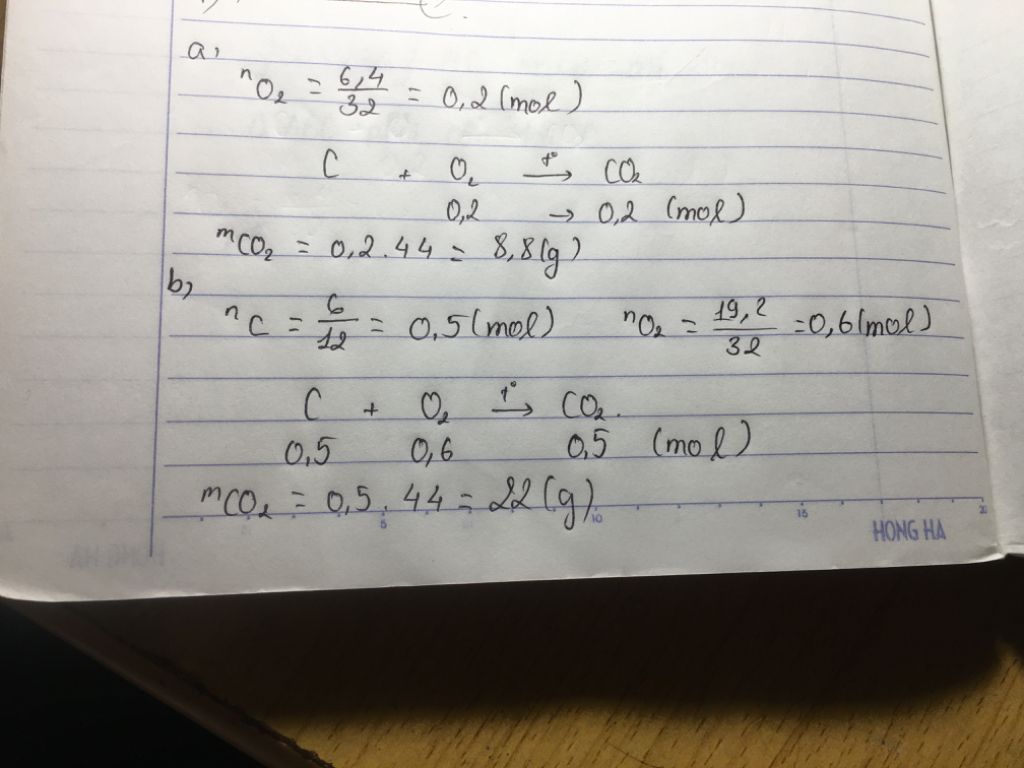 a,
nO₂ = 6,4/32 = 0,2 (mol)
C + O₂ t°→ CO₂
0,2 → 0,2 (mol)
mCO₂ = 0,2 . 44 = 8,8 (g)
b,
nC = 6/12 = 0,5 (mol) nO₂ = 19,2/32 = 0,6 (mol)
C + O₂ t°→ CO₂.
0,5 0,6 0,5 (mol)
mCO₂ = 0,5 . 44 = 22 (g)
5 10 15 20
HONG HA